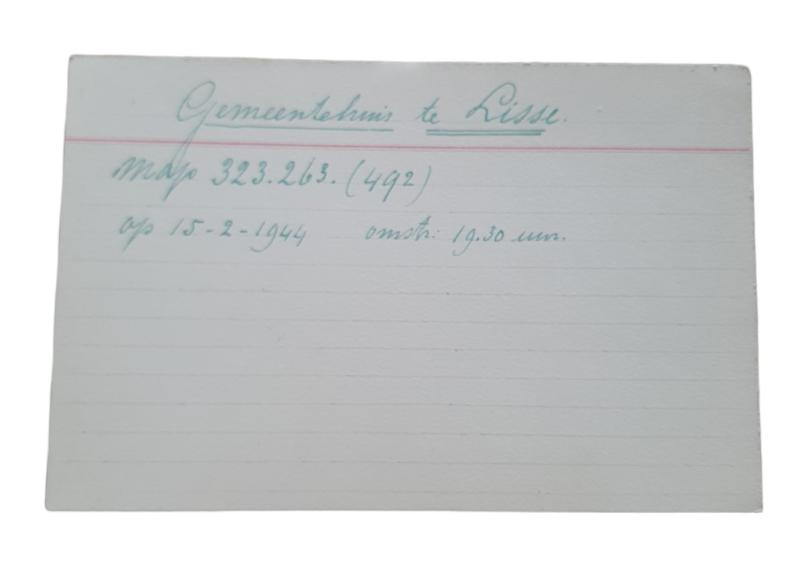 Gemeentehuis te Lisse.
Map 323.263. (492)
op 15-2-1944 omstr: 19.30 uur.